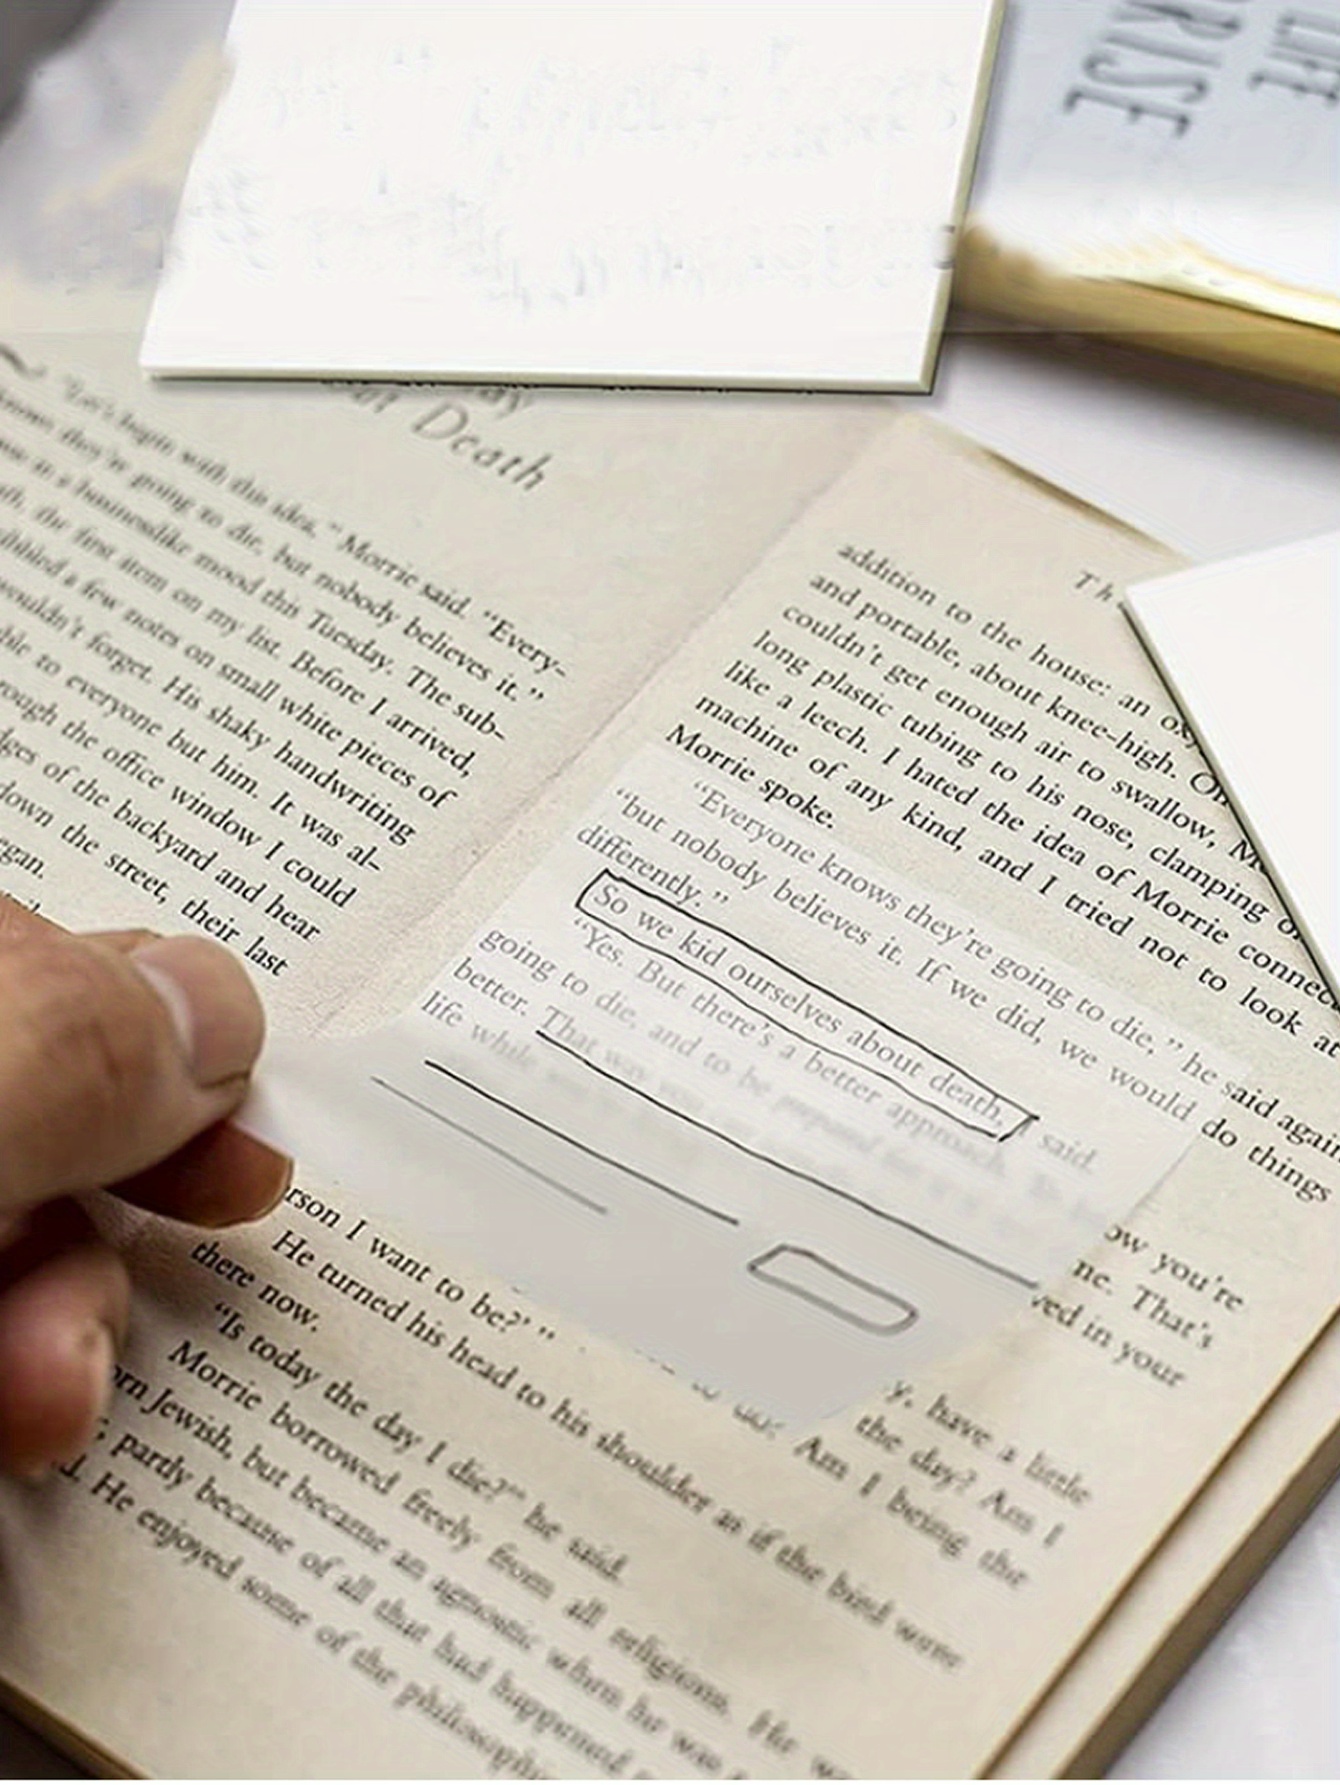 LIFE
RISE
Death
"Let's begin with this idea," Morrie said. "Every-
knows they're going to die, but nobody believes it."
in a businesslike mood this Tuesday. The sub-
the first item on my list. Before I arrived,
a few notes on small white pieces of
forget. His shaky handwriting
to everyone but him. It was al-
the office window I could
of the backyard and hear
down the street, their last
Th
addition to the house: an
and portable, about knee-high.
couldn't get enough air to swallow,
long plastic tubing to his nose, clamping
like a leech. I hated the idea of Morrie
machine of any kind, and I tried not to look at
Morrie spoke.
"Everyone knows they're going to die," he said again
"but nobody believes it. If we did, we would do things
differently."
So we kid ourselves about death, I said.
"Yes. But there's a better approach.
ow you're
going to die, and to be prepared
ne. That's
better. That way you
ved in your
life while
y, have a little
the day? Am I
Am I being the
rson I want to be?'"
He turned his head to his shoulder as if the bird were
there now.
"Is today the day I die?" he said.
Morrie borrowed freely from all religions. He
Jewish, but became an agnostic when he was
partly because of all that had happened
He enjoyed some of the